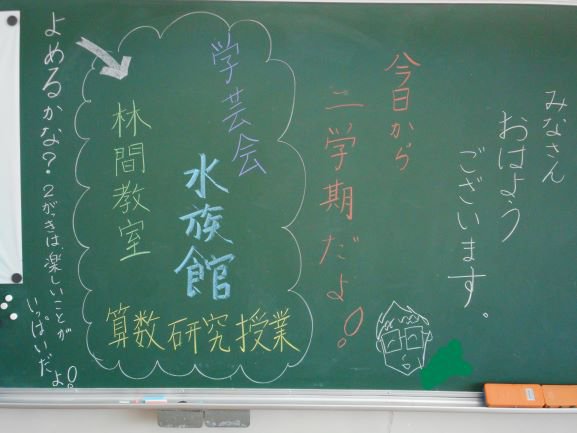 みなさん
おはよう
ございます。
今日から
二学期だよ!
学芸会
水族館
林間教室
算数研究授業
よめるかな?2がっきは楽しいことが
いっぱいだよ!